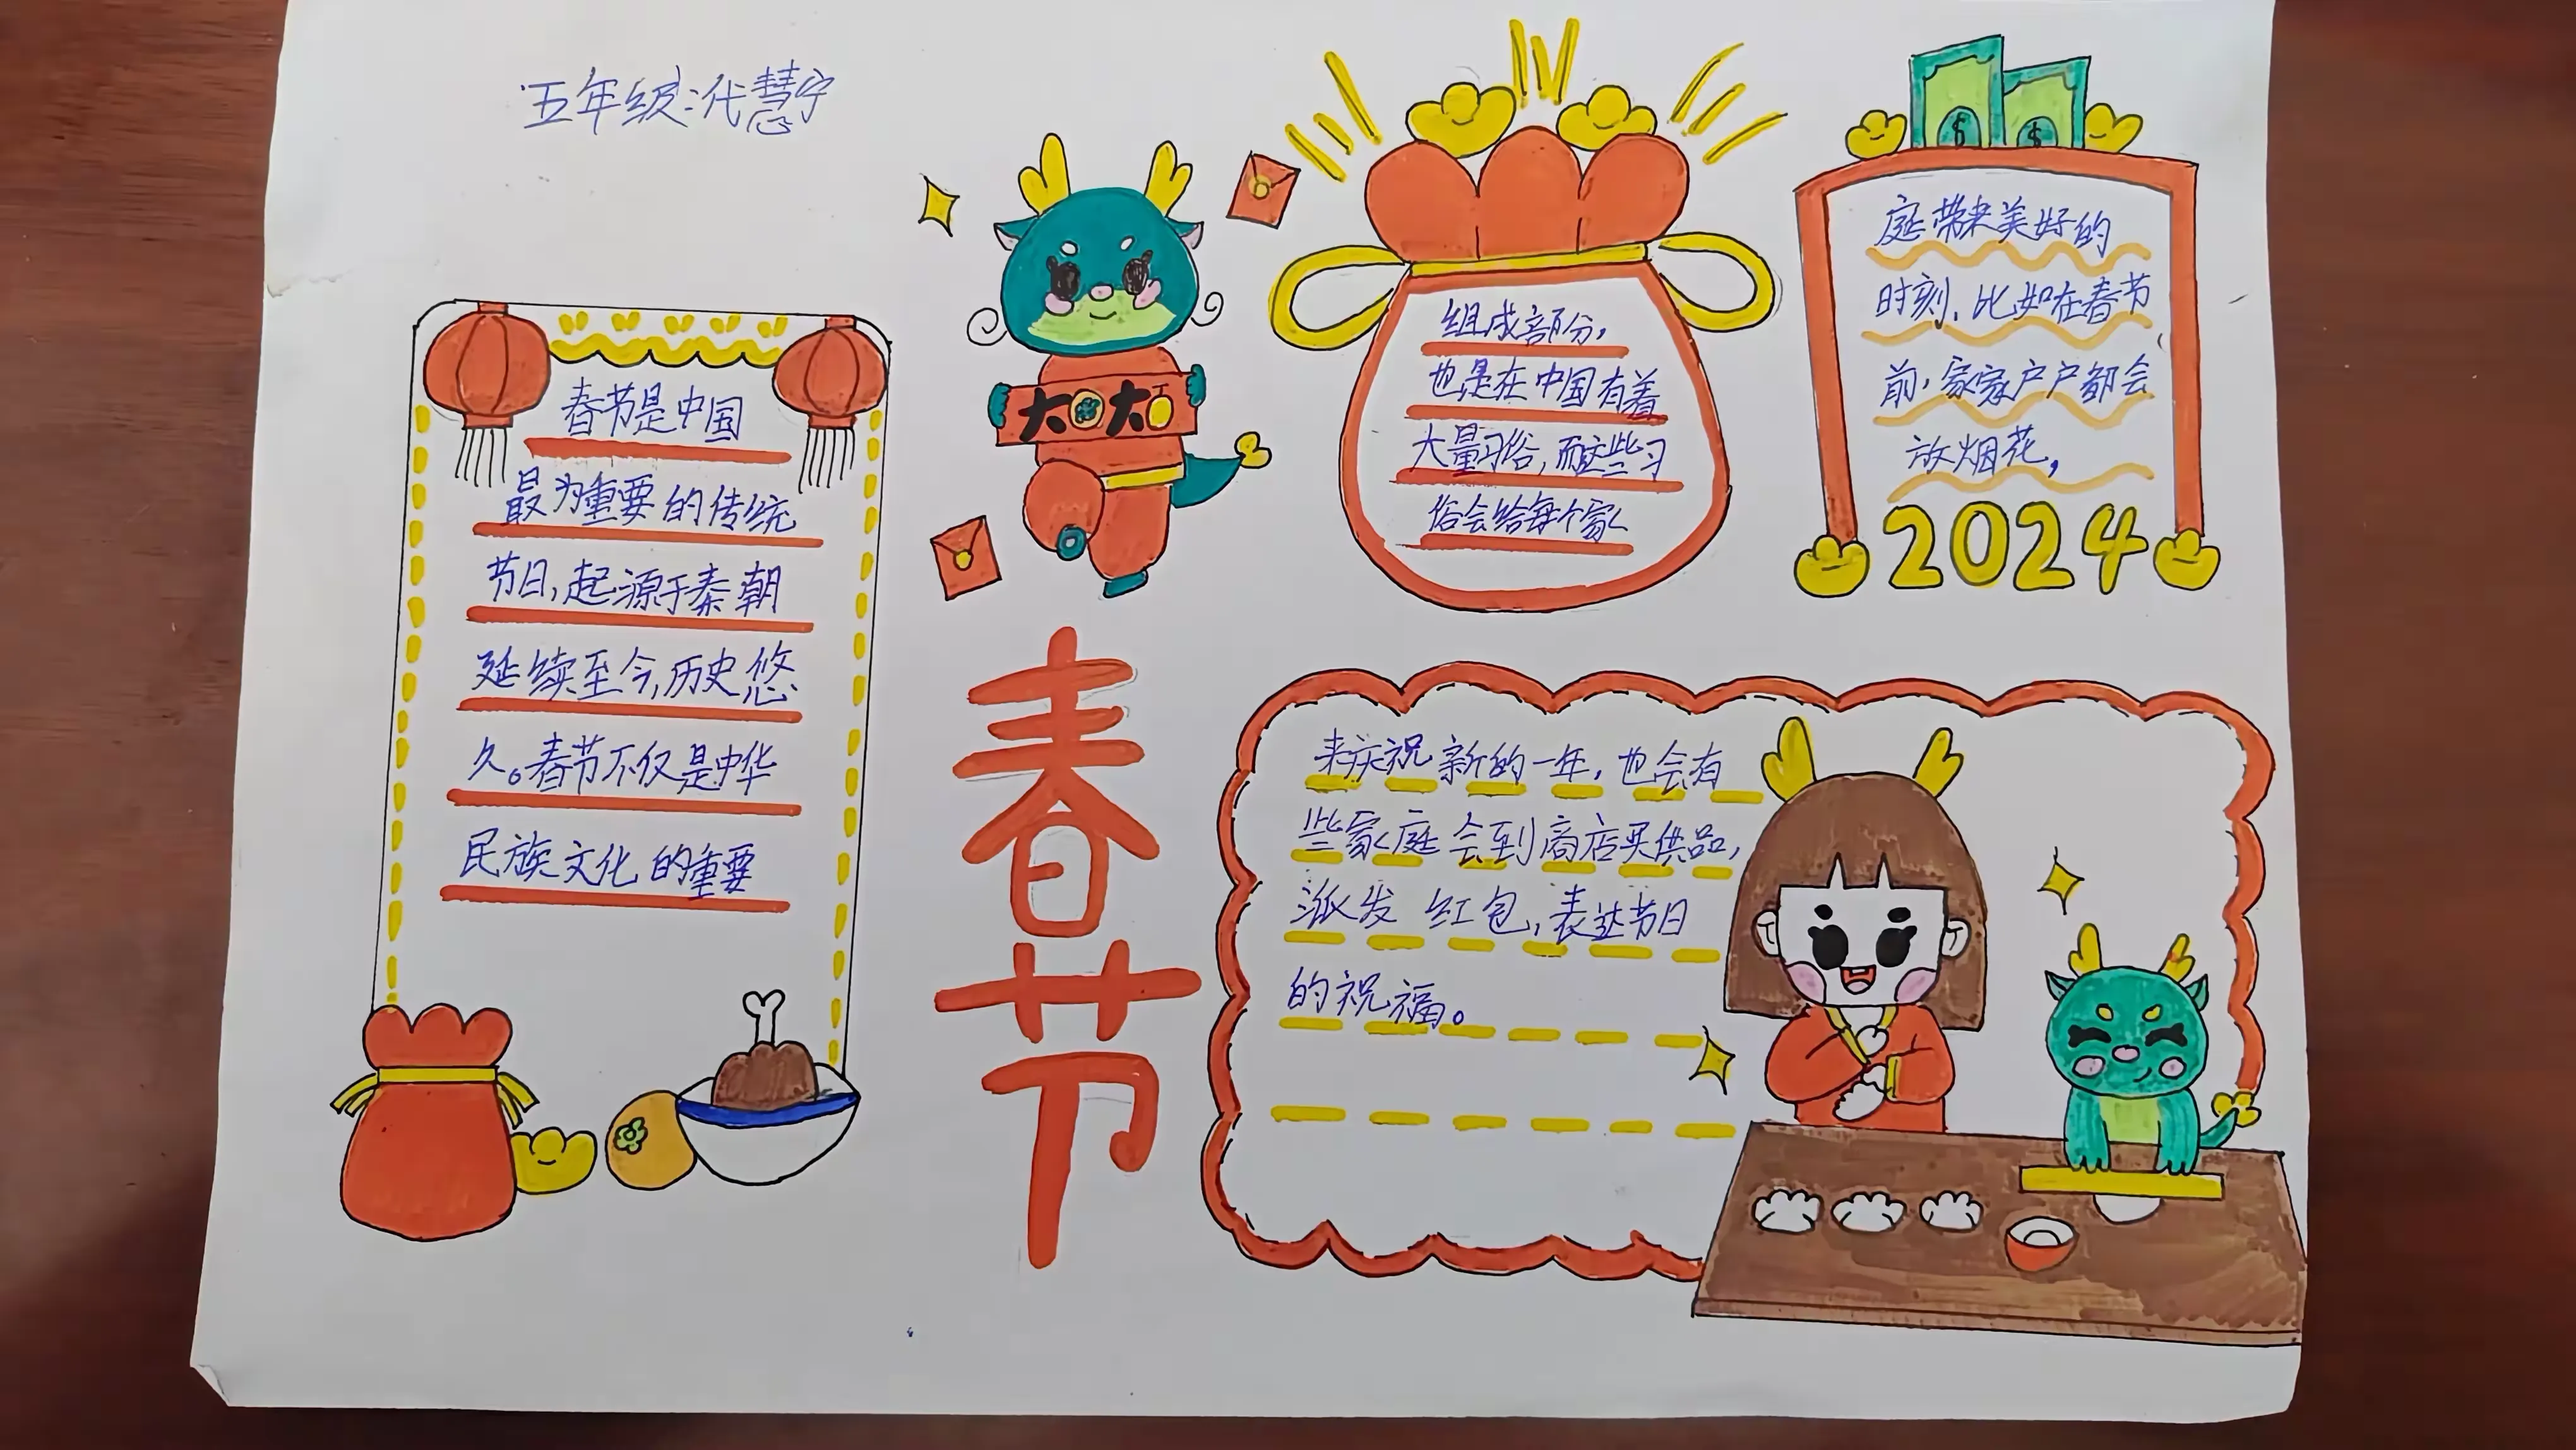 五年级:代慧宁
春节是中国
最为重要的传统
节日,起源于秦朝
延续至今,历史悠
久。春节不仅是中华
民族文化的重要
大 大
春节
组成部分,
也是在中国有着
大量习俗,而这些习
俗会给每个家
庭带来美好的
时刻、比如在春节
前,家家户户都会
放烟花,
2024
来庆祝新的一年,也会有
些家庭会到商店买供品,
派发红包,表达节日
的祝福。